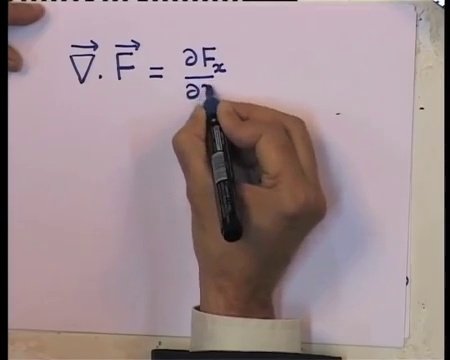 ∇⃗ · F⃗ = ∂Fₓ/∂x